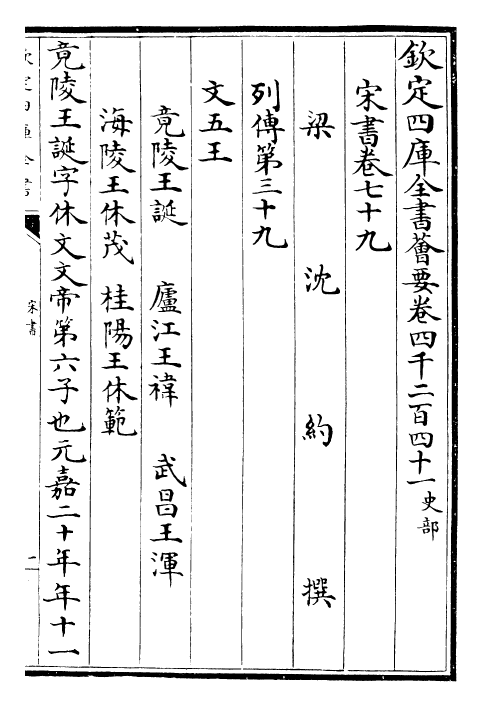 欽定四庫全書薈要卷四千二百四十一史部
宋書卷七十九
梁沈約撰
列傳第三十九
文五王
竟陵王誕 廬江王禕 武昌王渾
海陵王休茂 桂陽王休範
竟陵王誕字休文文帝第六子也元嘉二十年年十一
欽定四庫全書
宋書